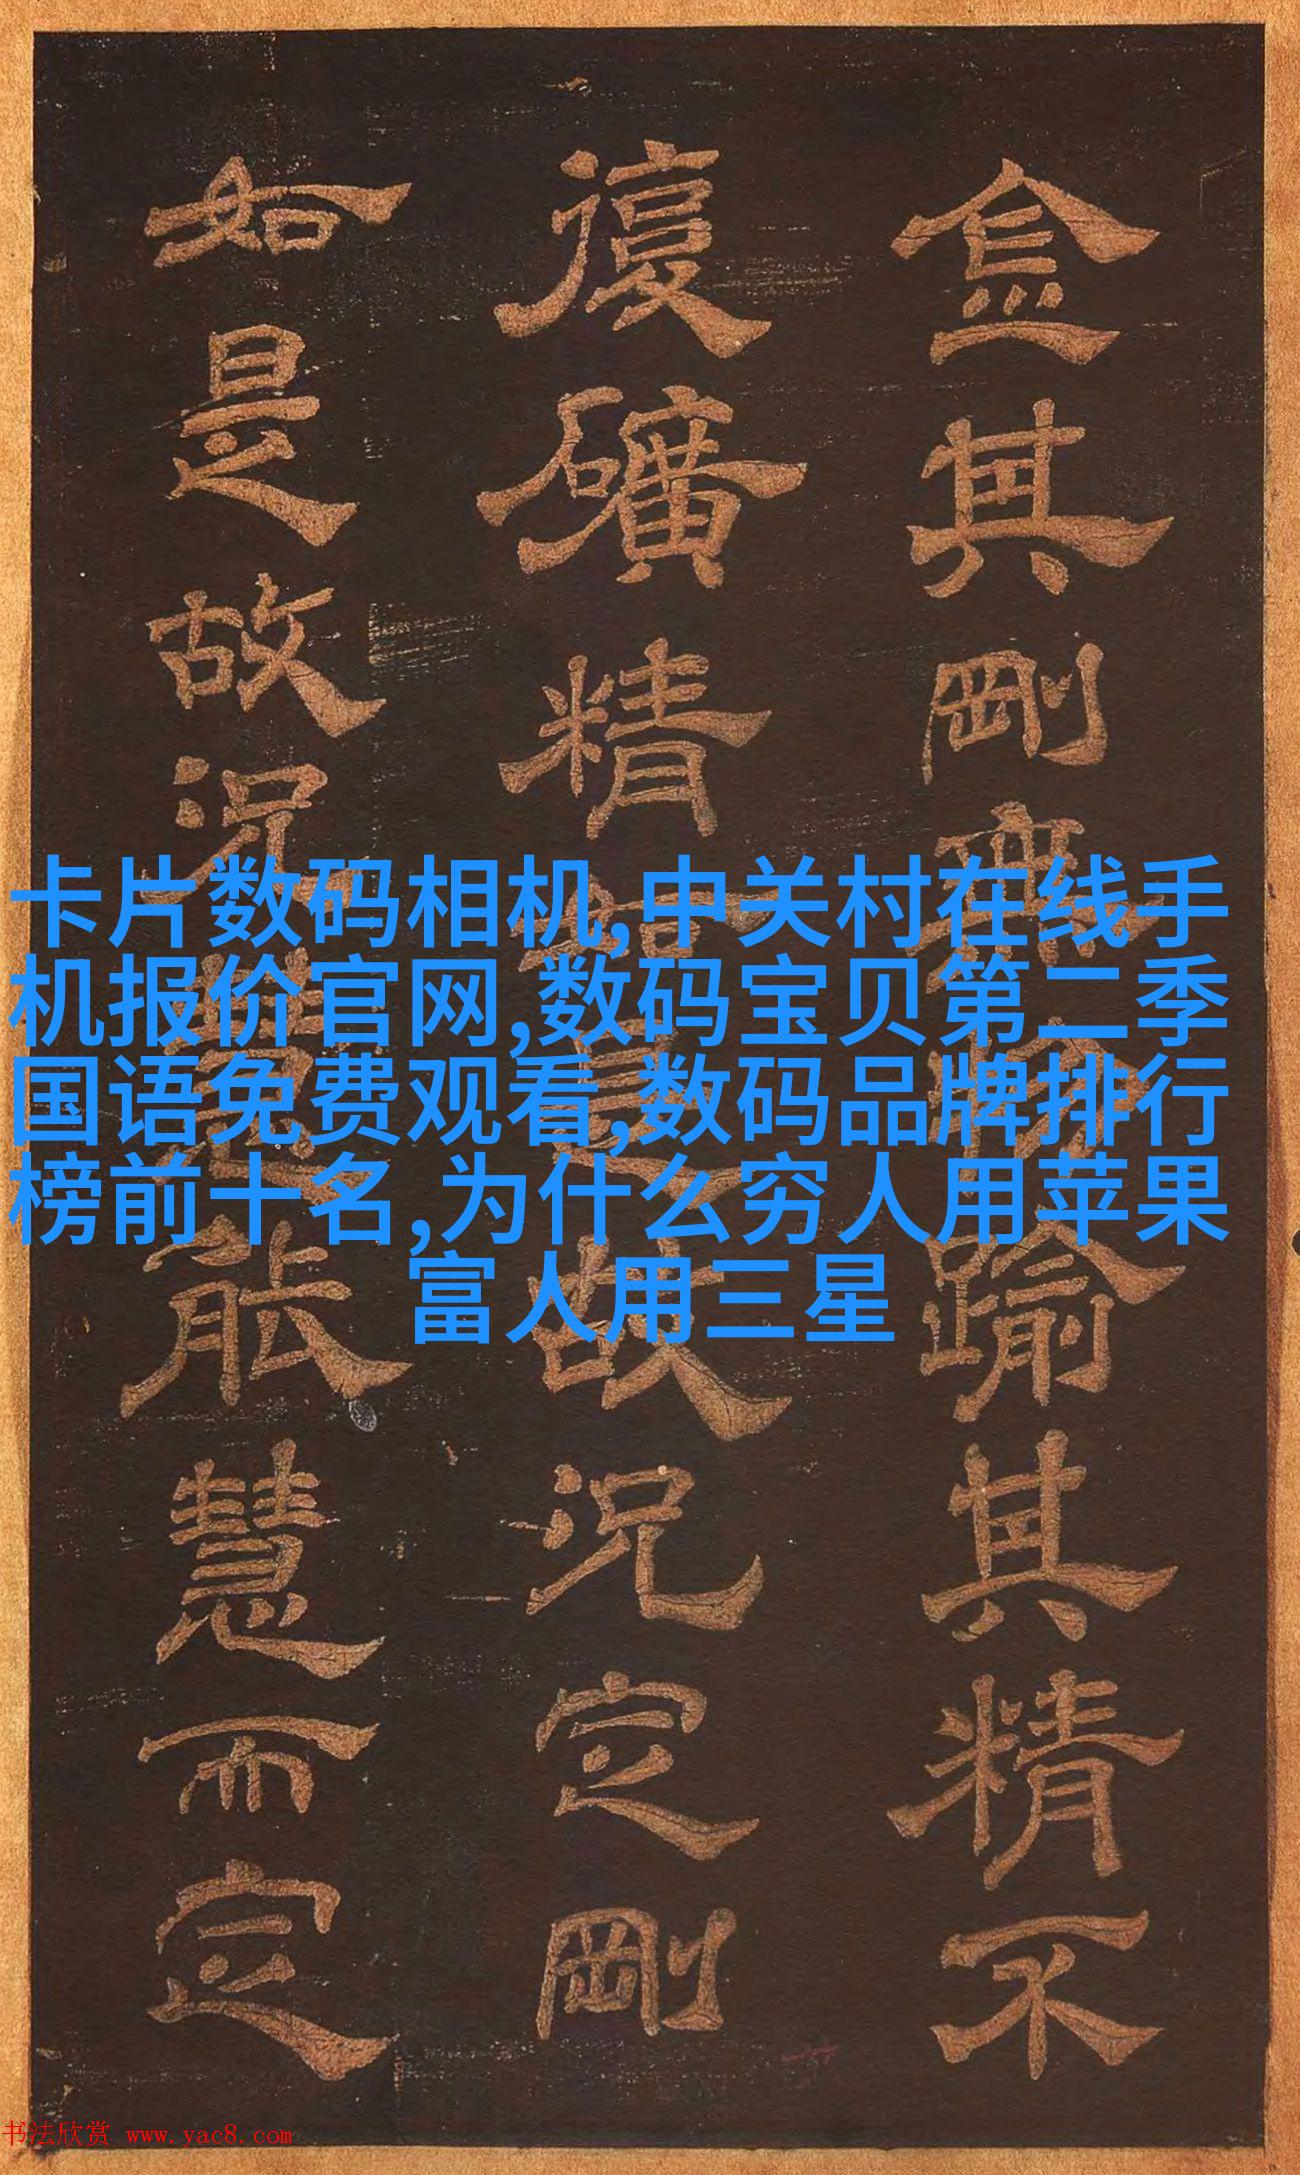 金其剛踰其精不
復礦精故況定剛
如是故況能慧而定
卡片数码相机,中关村在线手
机报价官网,数码宝贝第二季
国语免费观看,数码品牌排行
榜前十名,为什么穷人用苹果
富人用三星
书法欣赏 www.yac8.com